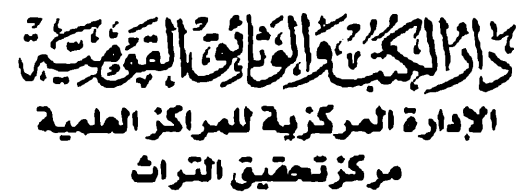 دار الكتب والوثائق القومية
الإدارة المركزية للمراكز العلمية
مركز تحقيق التراث